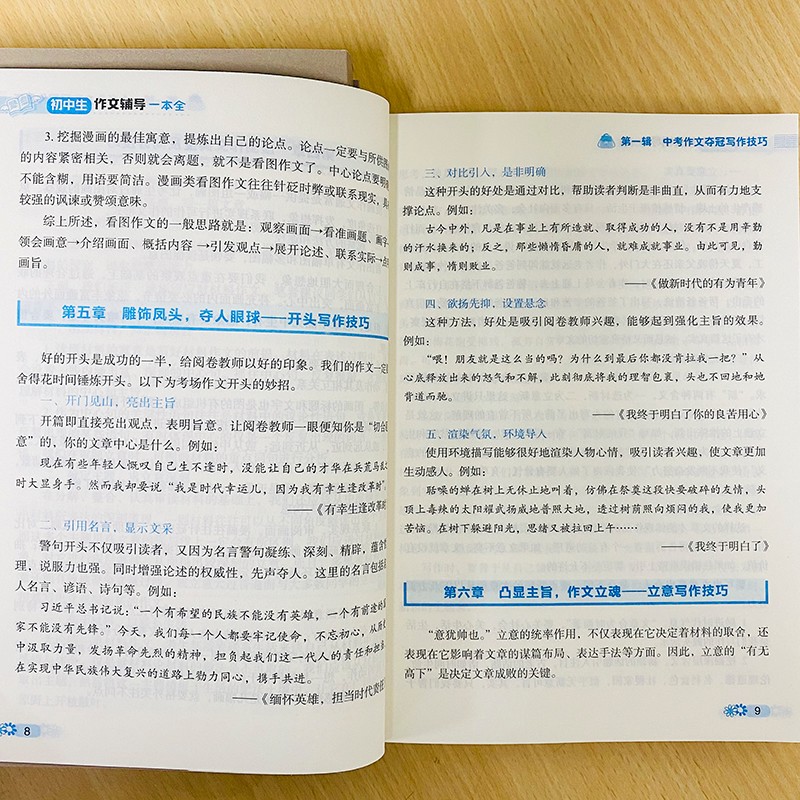 初中生 作文辅导 一本全
3. 挖掘漫画的最佳寓意，提炼出自己的论点。论点一定要与所供
的内容紧密相关，否则就会离题，就不是看图作文了。中心论点要
不能含糊，用语要简洁。漫画类看图作文往往针砭时弊或联系现实，具
较强的讽谏或赞颂意味。
综上所述，看图作文的一般思路就是：观察画面→看准画题、画字
领会画意→介绍画面、概括内容→引发观点→展开论述、联系实际→
画旨。
第五章 雕饰凤头，夺人眼球——开头写作技巧
好的开头是成功的一半，给阅卷教师以好的印象。我们的作文一定
舍得花时间锤炼开头。以下为考场作文开头的妙招。
一、开门见山，亮出主旨
开篇即直接亮出观点，表明旨意。让阅卷教师一眼便知你是“初
意”的，你的文章中心是什么。例如：
现在有些年轻人慨叹自己生不逢时，没能让自己的才华在兵荒马
时大显身手。然而我却要说“我是时代幸运儿，因为我有幸生逢改革时”。
——《有幸生逢改革时
二、引用名言，显示文采
警句开头不仅吸引读者，又因为名言警句凝练、深刻、精辟，蕴含
理，说服力也强。同时增强论述的权威性，先声夺人。这里的名言包括
人名言、谚语、诗句等。例如：
习近平总书记说：“一个有希望的民族不能没有英雄，一个有前途的
家不能没有先锋。”今天，我们每一个人都要牢记使命，不忘初心，从历
中汲取力量，发扬革命先烈的精神，担负起我们这一代人的责任和担
在实现中华民族伟大复兴的道路上勠力同心，携手共进。
——《缅怀英雄，担当时代责任
8
第一辑 中考作文夺冠写作技巧
三、对比引入，是非明确
这种开头的好处是通过对比，帮助读者判断是非曲直，从而有力地支
撑论点。例如：
古今中外，凡是在事业上有所造就、取得成功的人，没有不是用辛勤
的汗水换来的；反之，那些懒惰昏庸的人，就难成就事业。由此可见，勤
则成事，惰则败业。
——《做新时代的有为青年》
四、欲扬先抑，设置悬念
这种方法，好处是吸引阅卷教师兴趣，能够起到强化主旨的效果。
例如：
“喂！朋友就是这么当的吗？为什么到最后你都没肯拉我一把？”从
心底释放出来的怒气和不解，此刻彻底将我的理智包裹，头也不回地和她
背道而驰。
——《我终于明白了你的良苦用心》
五、渲染气氛，环境导入
使用环境描写能够很好地渲染人物心情，吸引读者兴趣，使文章更加
生动感人。例如：
聒噪的蝉在树上无休止地叫着，仿佛在祭奠这段快要破碎的友情，头
顶上毒辣的太阳耀武扬威地普照大地，透过树荫照向烦闷的我，使我更加
苦恼。在树下躲避阳光，思绪又被拉回上午……
——《我终于明白了》
第六章 凸显主旨，作文立魂——立意写作技巧
“意犹帅也。”立意的统率作用，不仅表现在它决定着材料的取舍，还
表现在它影响着文章的谋篇布局、表达手法等方面。因此，立意的“有无
高下”是决定文章成败的关键。
9